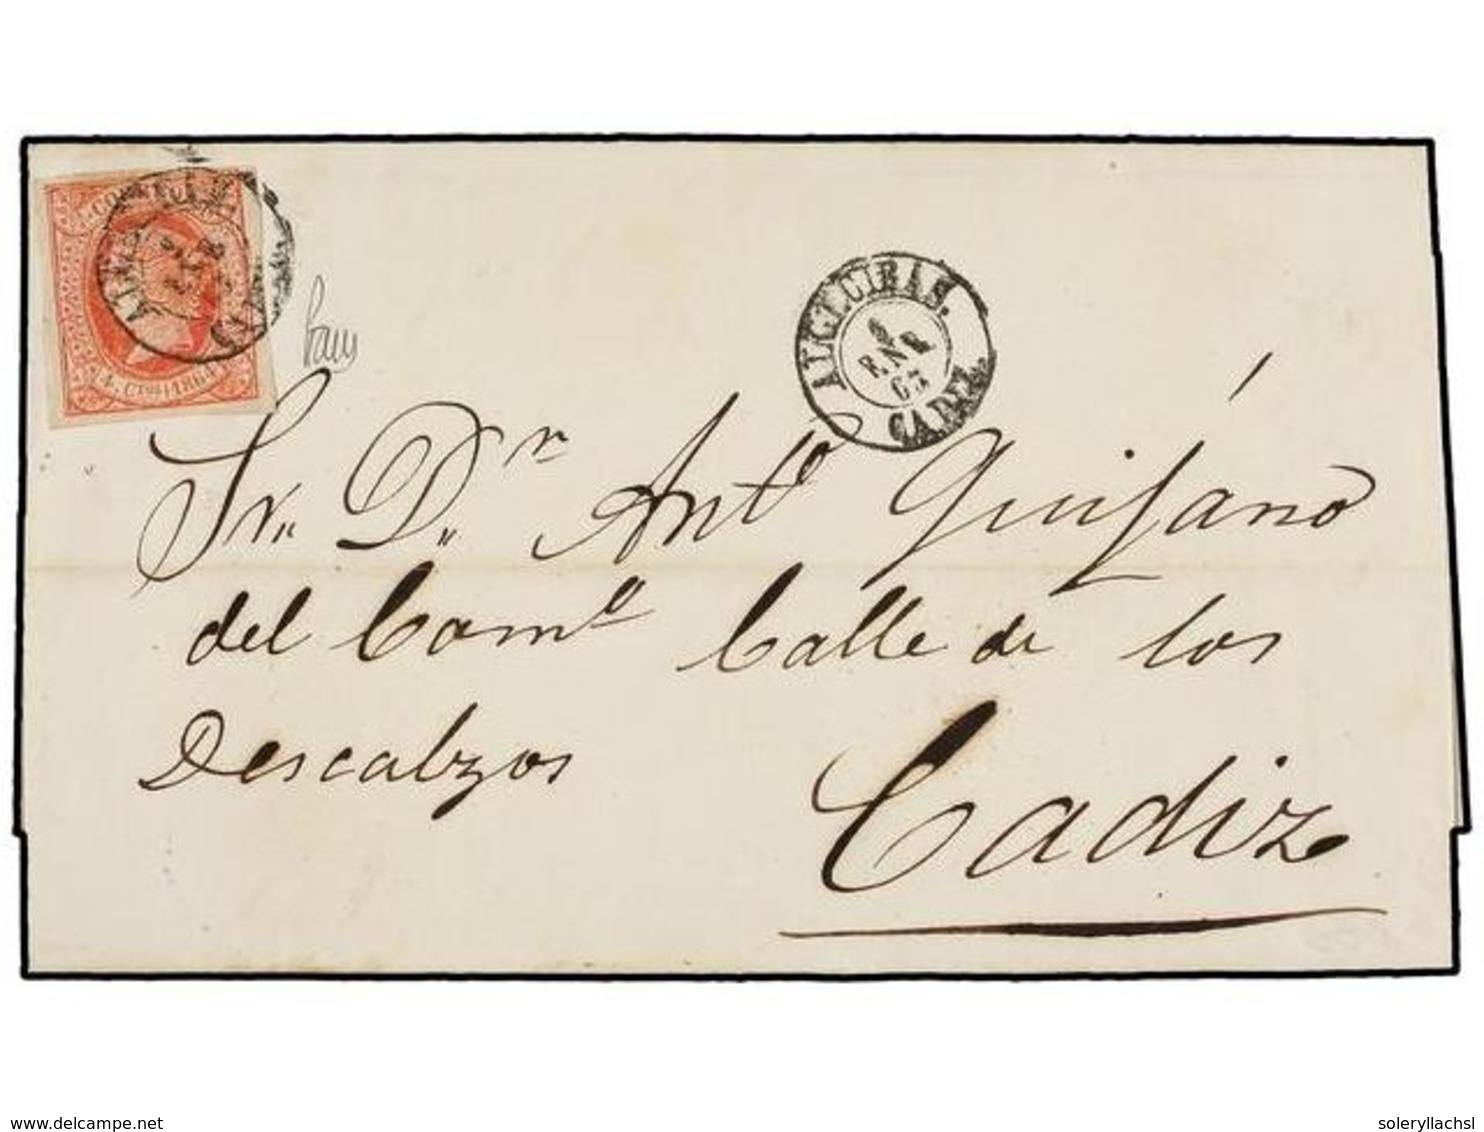 CORREOS
4 Ctos 1864
ALGECIRAS.
ENE
CADIZ.
Sr. D.n Ant.o Quijano
del Com.o Calle de los
Descalzos
Cadiz
www.delcampe.net
soleryllachsl